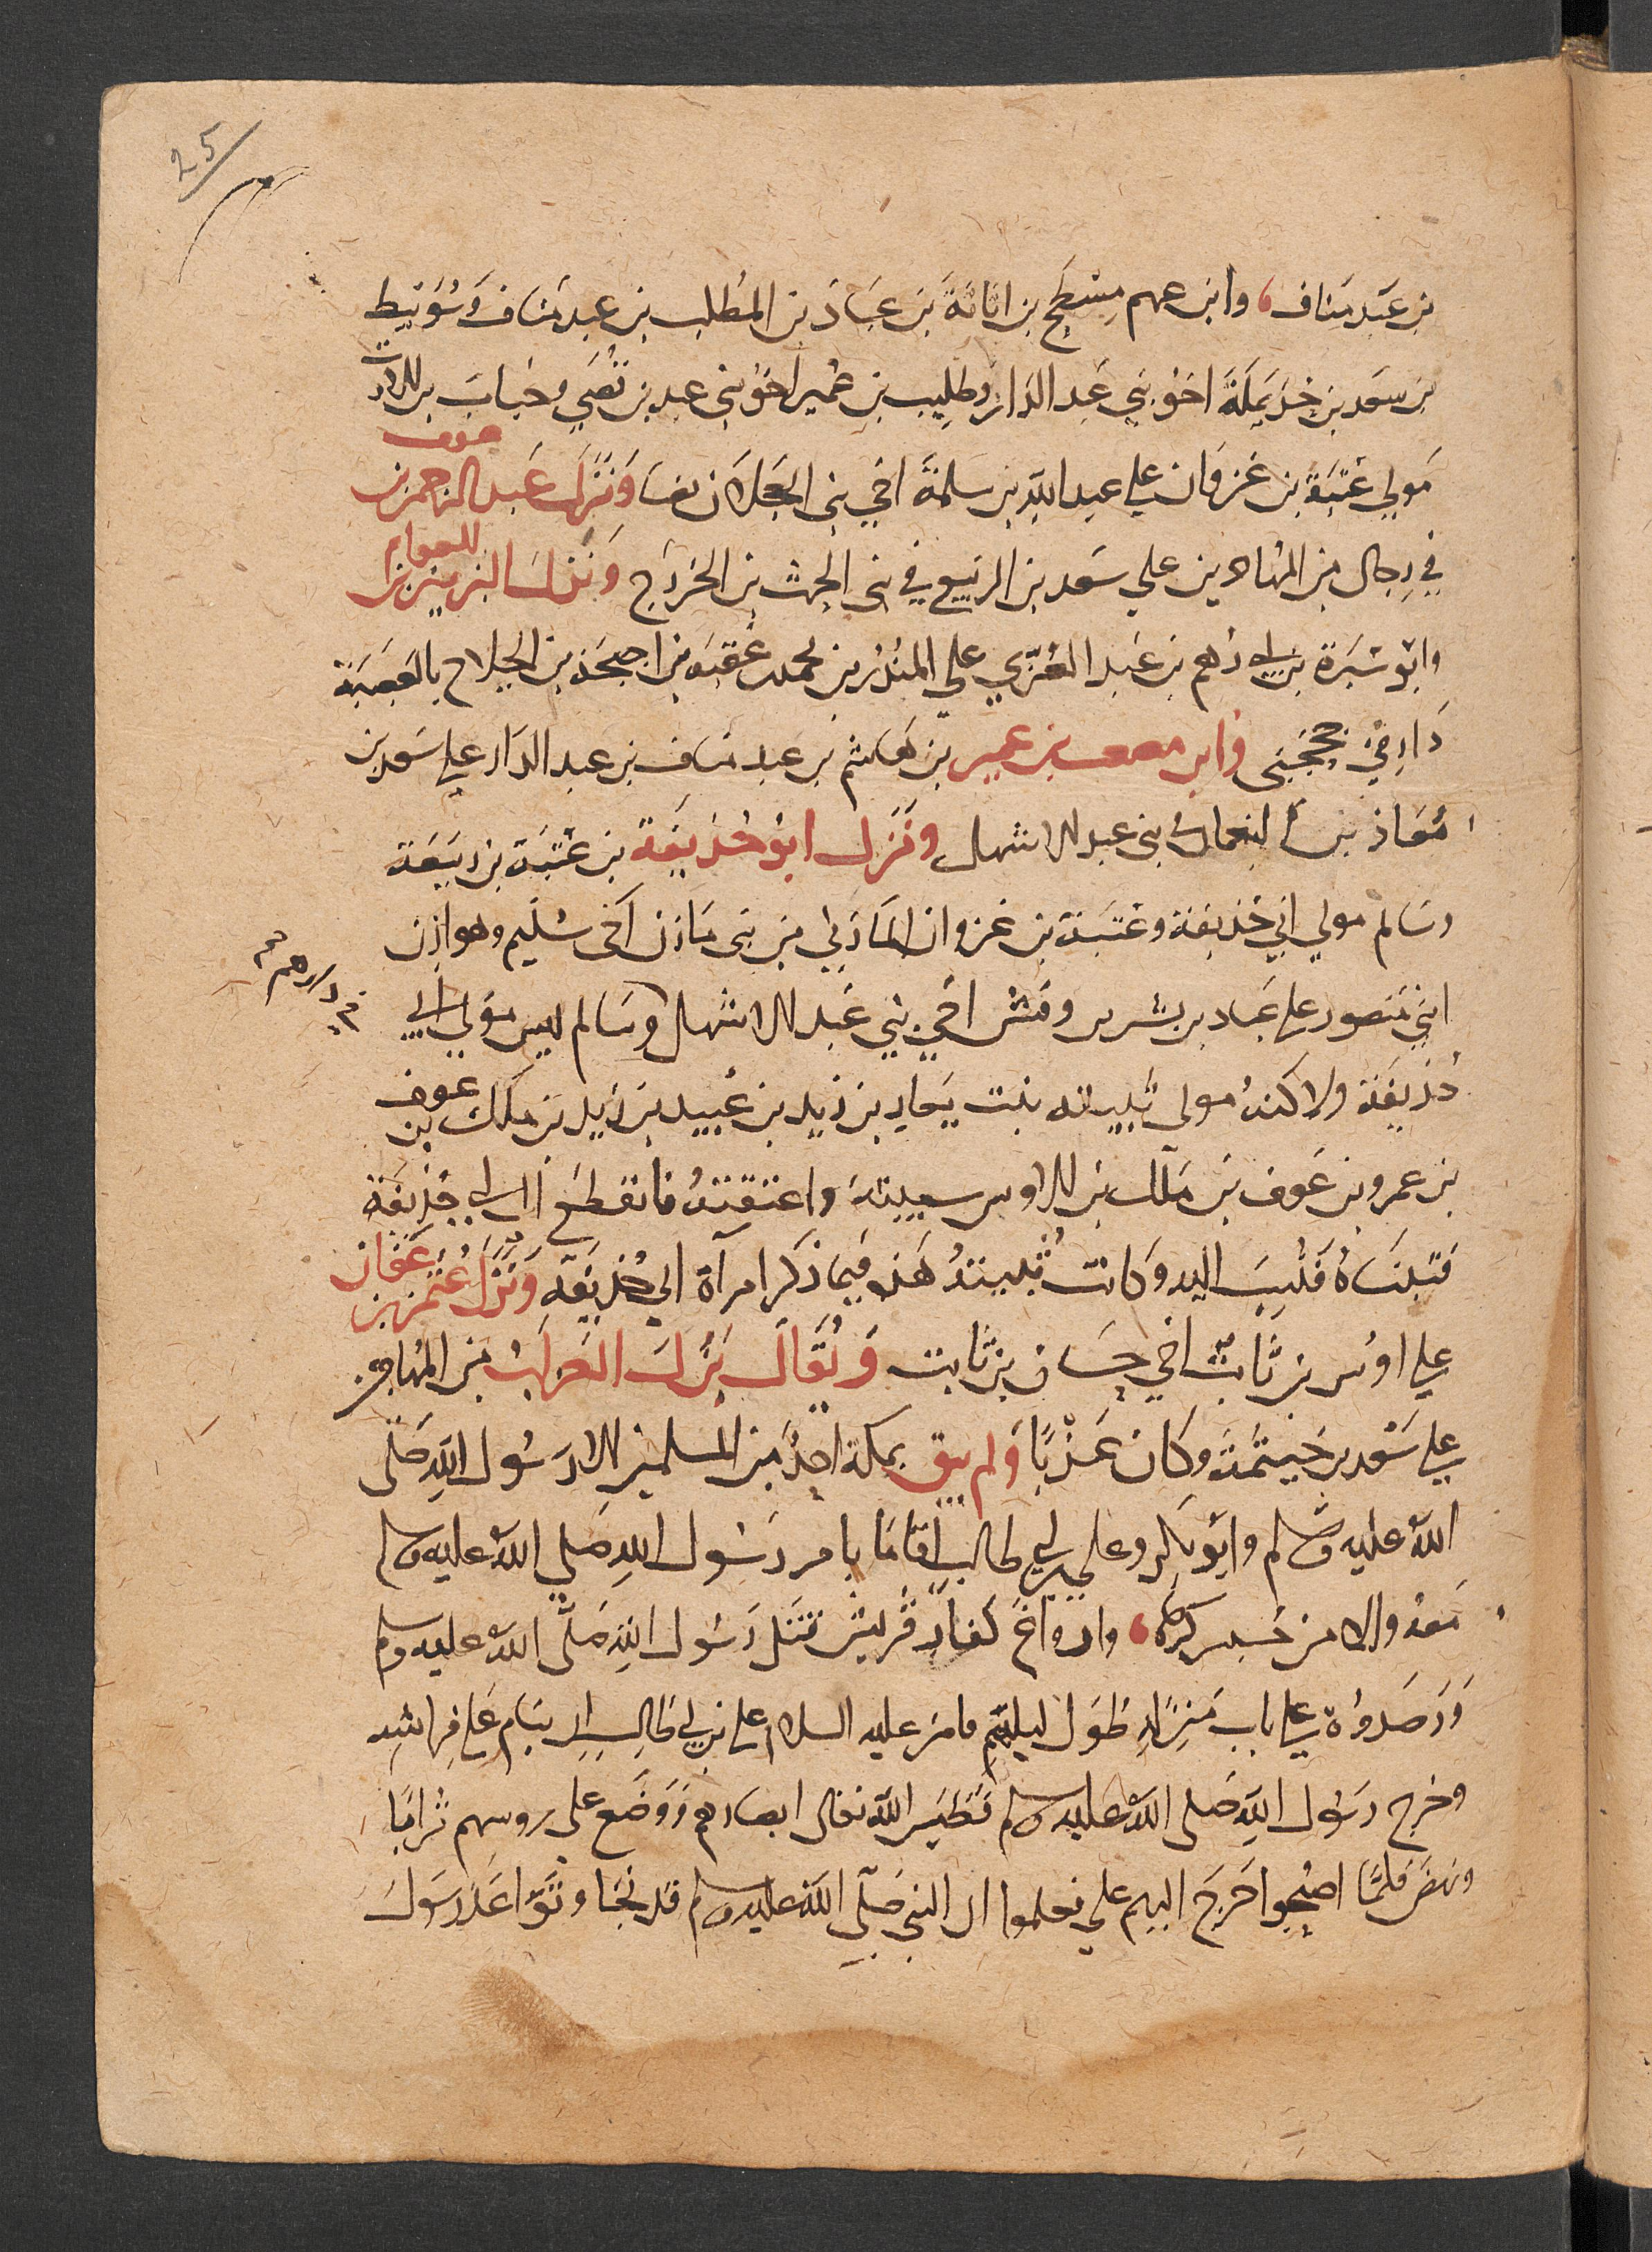 25
بن عبد مناف، وابن عمهم مسطح بن اثاثة بن عباد بن المطلب بن عبد مناف وسويبط
بن سعد بن خذيملة اخو بني عبد الدار وطليب بن عمير اخو بني عبد بن قصي وخباب بن الارت
مولي عتبة بن غزوان علي عبد الله بن سلمة اخي بني العجلان بقبا ونزل عبد الرحمن بن عوف
في رجال من المهاجرين علي سعد بن الربيع في بني الحرث بن الخزرج ونزل الزبير بن العوام
وابو سبرة بن ابي رهم بن عبد العزي علي المنذر بن محمد بن عقبة بن احيحة بن الجلاح بالعصبة
دار بني جحجبى وابن مصعب بن عمير بن هاشم بن عبد مناف بن عبد الدار علي سعد بن
معاذ بن النعمان بني عبد الاشهل ونزل ابو حذيفة بن عتبة بن ربيعة
وسالم مولي ابي حذيفة وعتبة بن غزوان المازني من بني مازن اخي سليم وهوازن
ابني منصور علي عباد بن بشر بن وقش اخي بني عبد الاشهل وسالم ليس مولي ابي
حذيفة ولاكنه مولي ثبيته بنت يعار بن زيد بن عبيد بن زيد بن ملك بن عوف
بن عمرو بن عوف بن ملك بن الاوس سيبته واعتقته فانقطع الى ابي حذيفة
فتبناه فنسب اليه وكانت ثبيته هذه فيما ذكر امرأة ابي حذيفة ونزل عثمن بن عفان
علي اوس بن ثابت اخي حسان بن ثابت ويقال نزل العزاب من المهاجرين
علي سعد بن خيثمة وكان عزبا ولم يبق بمكة احد من المسلمين الا رسول الله صلى
الله عليه وسلم وابو بكر وعلي بن ابي طالب اقاما بامر رسول الله صلي الله عليه وسلم
معه والا من حبس كرها، واراغ كفار قريش قتل رسول الله صلى الله عليه وسلم
ورصدوه علي باب منزله طول ليلتهم فامر عليه السلام علي بن ابي طالب ان ينام علي فراشه
وخرج رسول الله صلى الله عليه وسلم فطمس الله تعالى ابصارهم ووضع على روسهم ترابا
ونهض فلما اصبحوا خرج اليهم علي فعلموا ان النبي صلى الله عليه وسلم قد نجا وتواعد رسول